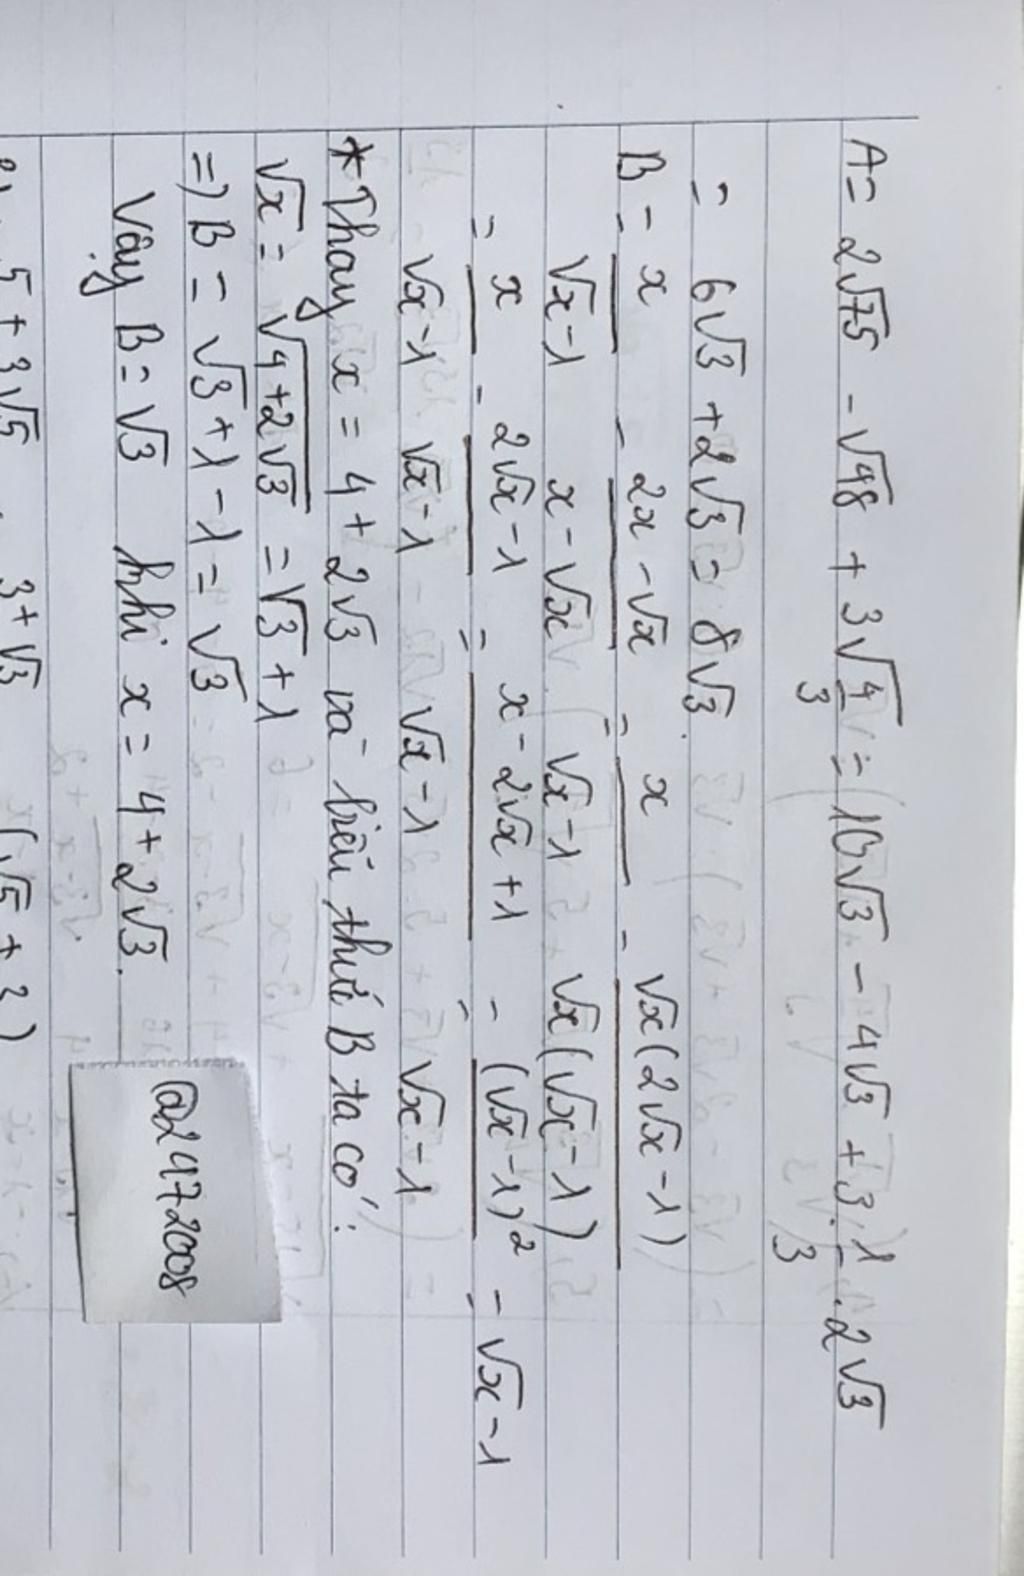 A = 2√75 - √48 + 3√(4/3) = 10√3 - 4√3 + 3. 1/3 .2√3
= 6√3 + 2√3 = 8√3.
B = x/(√x-1) - (2x-√x)/(x-√x) = x/(√x-1) - √x(2√x-1)/(√x(√x-1))
= x/(√x-1) - (2√x-1)/(√x-1) = (x-2√x+1)/(√x-1) = (√x-1)²/(√x-1) = √x-1
*Thay x = 4+2√3 và biểu thức B ta có:
√x = √(4+2√3) = √3+1
=) B = √3+1-1 = √3
Vậy B = √3 khi x = 4+2√3.
@2472008
5+3√5 3+√3 (√5+3)